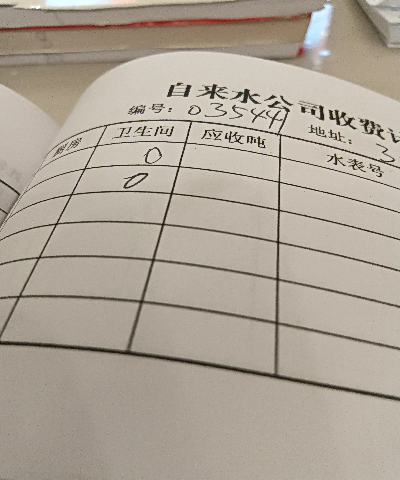 自来水公司收费
编号：03544 地址：3
卫生间 应收吨 水表号
0
0